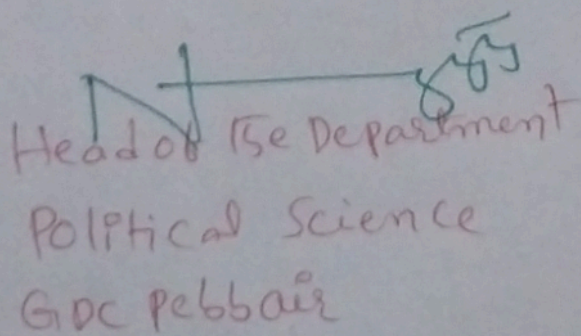 Head of The Department
Political Science
GDC Pebbair